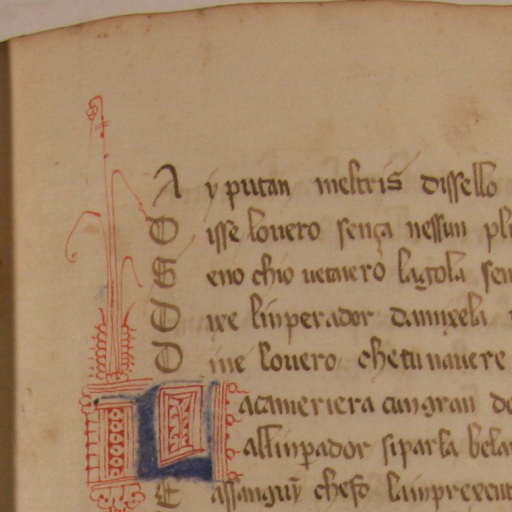 A y putan meltris dissello
D isse lo uero sença nessun pl
S eno chio uetaiero la gola sen
D ixe linperador damixela
D ime lo uero che tu nauere
L acameriera cun gran do
all inpador si parla bela
E assanguy chefo lainprexe